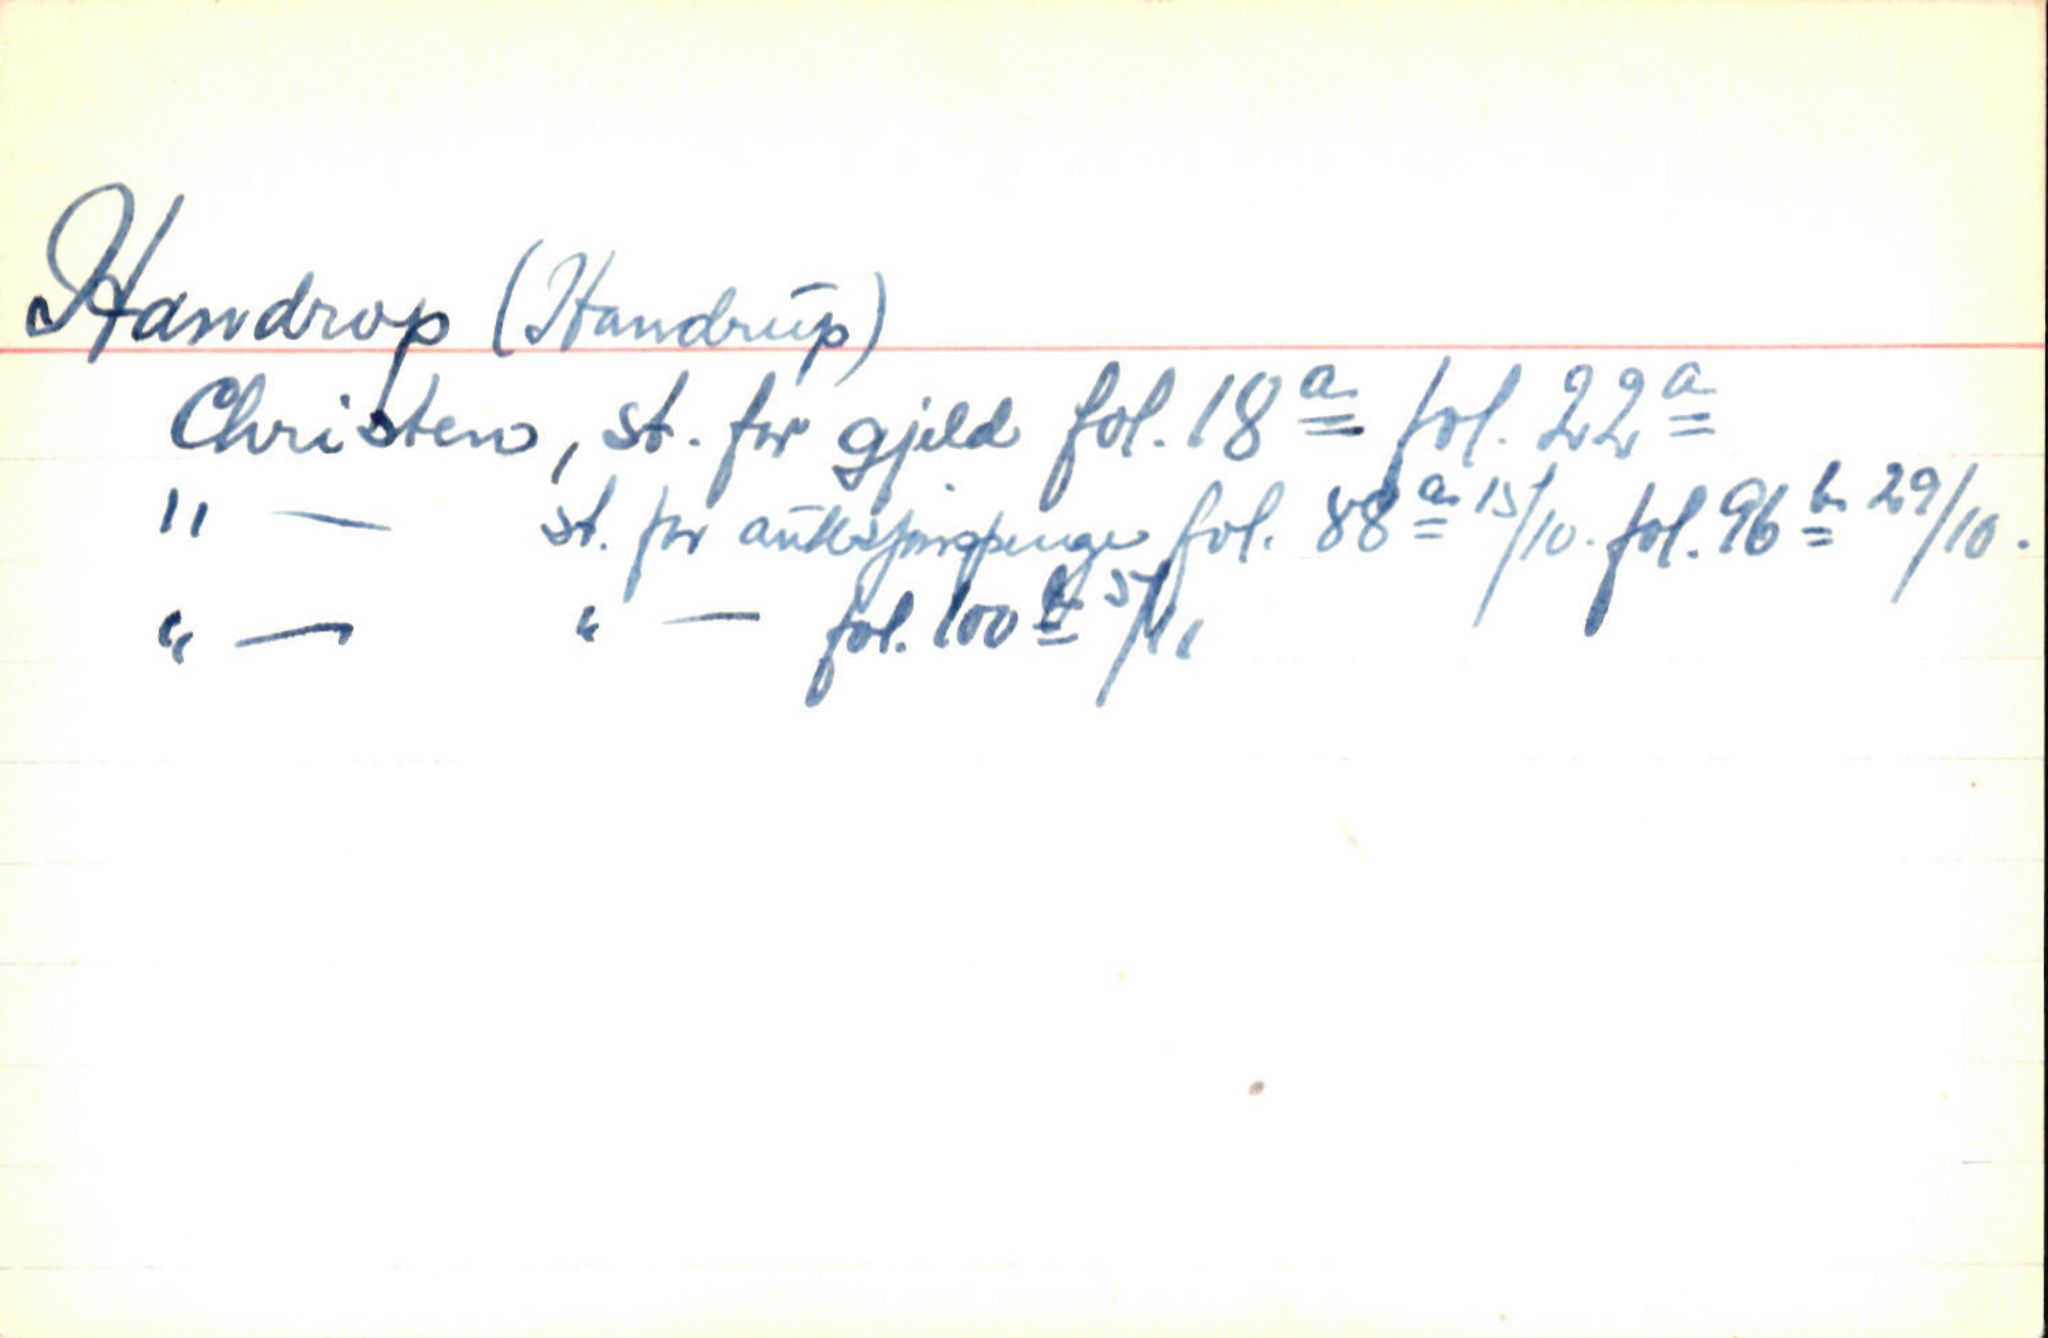 Handrop (Handrup)
Christen, st. for gjeld fol. 18a fol. 22a
" — st. for auksjonspenge fol. 88a 15/10. fol. 96b 29/10.
" — " — fol. 100b 5/11